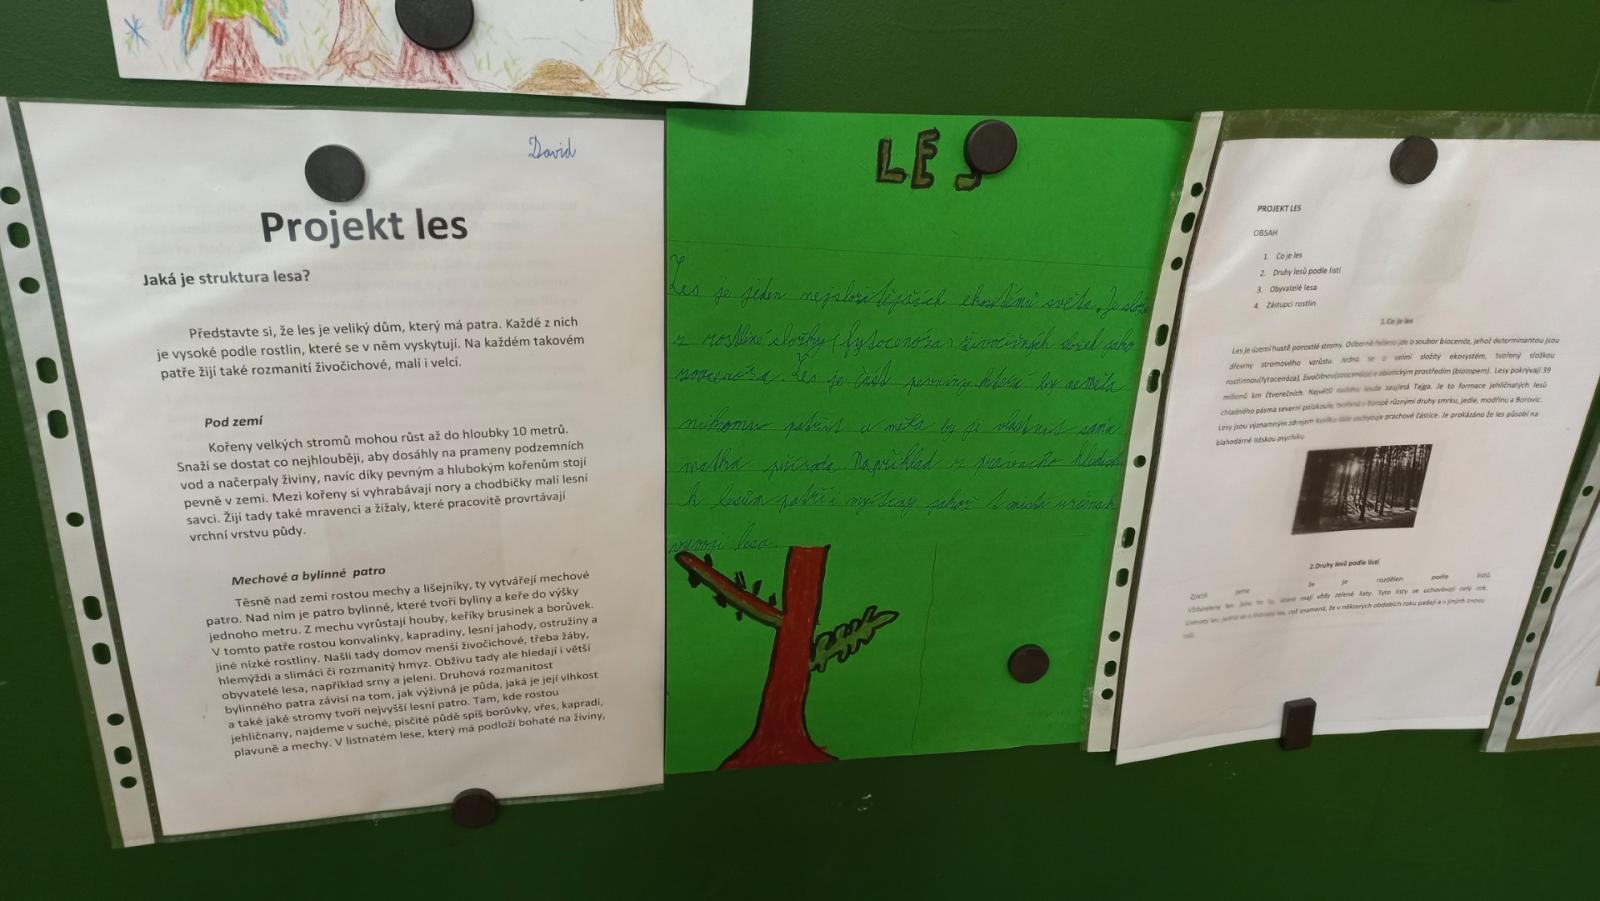 David
Projekt les
Jaká je struktura lesa?
Představte si, že les je veliký dům, který má patra. Každé z nich
je vysoké podle rostlin, které se v něm vyskytují. Na každém takovém
patře žijí také rozmanití živočichové, malí i velcí.
Pod zemí
Kořeny velkých stromů mohou růst až do hloubky 10 metrů.
Snaží se dostat co nejhlouběji, aby dosáhly na prameny podzemních
vod a načerpaly živiny, navíc díky pevným a hlubokým kořenům stojí
pevně v zemi. Mezi kořeny si vyhrabávají nory a chodbičky malí lesní
savci. Žijí tady také mravenci a žížaly, které pracovitě provrtávají
vrchní vrstvu půdy.
Mechové a bylinné patro
Těsně nad zemí rostou mechy a lišejníky, ty vytvářejí mechové
patro. Nad ním je patro bylinné, které tvoří byliny a keře do výšky
jednoho metru. Z mechu vyrůstají houby, keříky brusinek a borůvek.
V tomto patře rostou konvalinky, kapradiny, lesní jahody, ostružiny a
jiné nízké rostliny. Našli tady domov menší živočichové, třeba žáby,
hlemýždi a slimáci či rozmanitý hmyz. Obživu tady ale hledají i větší
obyvatelé lesa, například srny a jeleni. Druhová rozmanitost
bylinného patra závisí na tom, jak výživná je půda, jaká je její vlhkost
a také jaké stromy tvoří nejvyšší lesní patro. Tam, kde rostou
jehličnany, najdeme v suché, písčité půdě spíš borůvky, vřes, kapradí,
plavuně a mechy. V listnatém lese, který má podloží bohaté na živiny,
LES
Les je jeden nejsložitějších ekostémů světa. Je slož
z rostliné složky (fytocenóza) živočišných složek jako
zoocenóza. Les je část pevniny která by neměla
nikomu patřit a měla by ji vlastnit sama
matka příroda. Například z právního hlediska
k lesům patří i mýtiny
lesa
PROJEKT LES
OBSAH
1. Co je les
2. Druhy lesů podle listí
3. Obyvatelé lesa
4. Zástupci rostlin
1.Co je les
Les je území hustě porostlé stromy. Odborně řečeno jde o soubor biocenóz, jehož determinantou jsou
dřeviny stromového vzrůstu. Jedná se o velmi složitý ekosystém, tvořený složkou
rostlinnou(fytocenóza), živočišnou(zoocenóza) a abiotickým prostředím (biotopem). Lesy pokrývají 39
milionů km čtverečních. Největší rozlohu souše zaujímá Tajga. Je to formace jehličnatých lesů
chladného pásma severní polokoule, tvořená v Evropě různými druhy smrku, jedle, modřínu a Borovic.
Lesy jsou významným zdrojem kyslíku dále zachycuje prachové částice. Je prokázáno že les působí na
blahodárně lidskou psychiku.
2.Druhy lesů podle listí
Zjistili jsme že je rozdělen podle listů
Vždyzelený les: jsou to ty, které mají vždy zelené listy. Tyto listy se uchovávají celý rok.
což znamená, že v některých obdobích roku padají a v jiných znovu